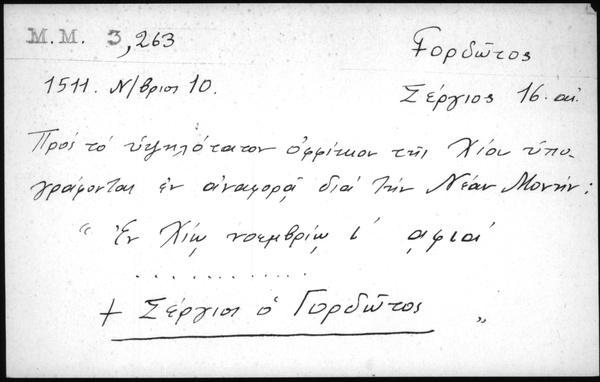 Μ.Μ. 3,263
Γορδῶτος
1511. Ν/βριος 10.
Σέργιος 16. αἰ.
Πρός τό ὑψηλότατον ὀφφίκιον τῆς Χίου ὑπο-
γράφονται ἐν ἀναφορᾷ διά τήν Νέαν Μονήν:
“ Ἐν Χίῳ νοεμβρίῳ ι΄ ͵αφια΄
. . . . . . . . . . . .
+ Σέργιος ὁ Γορδῶτος „